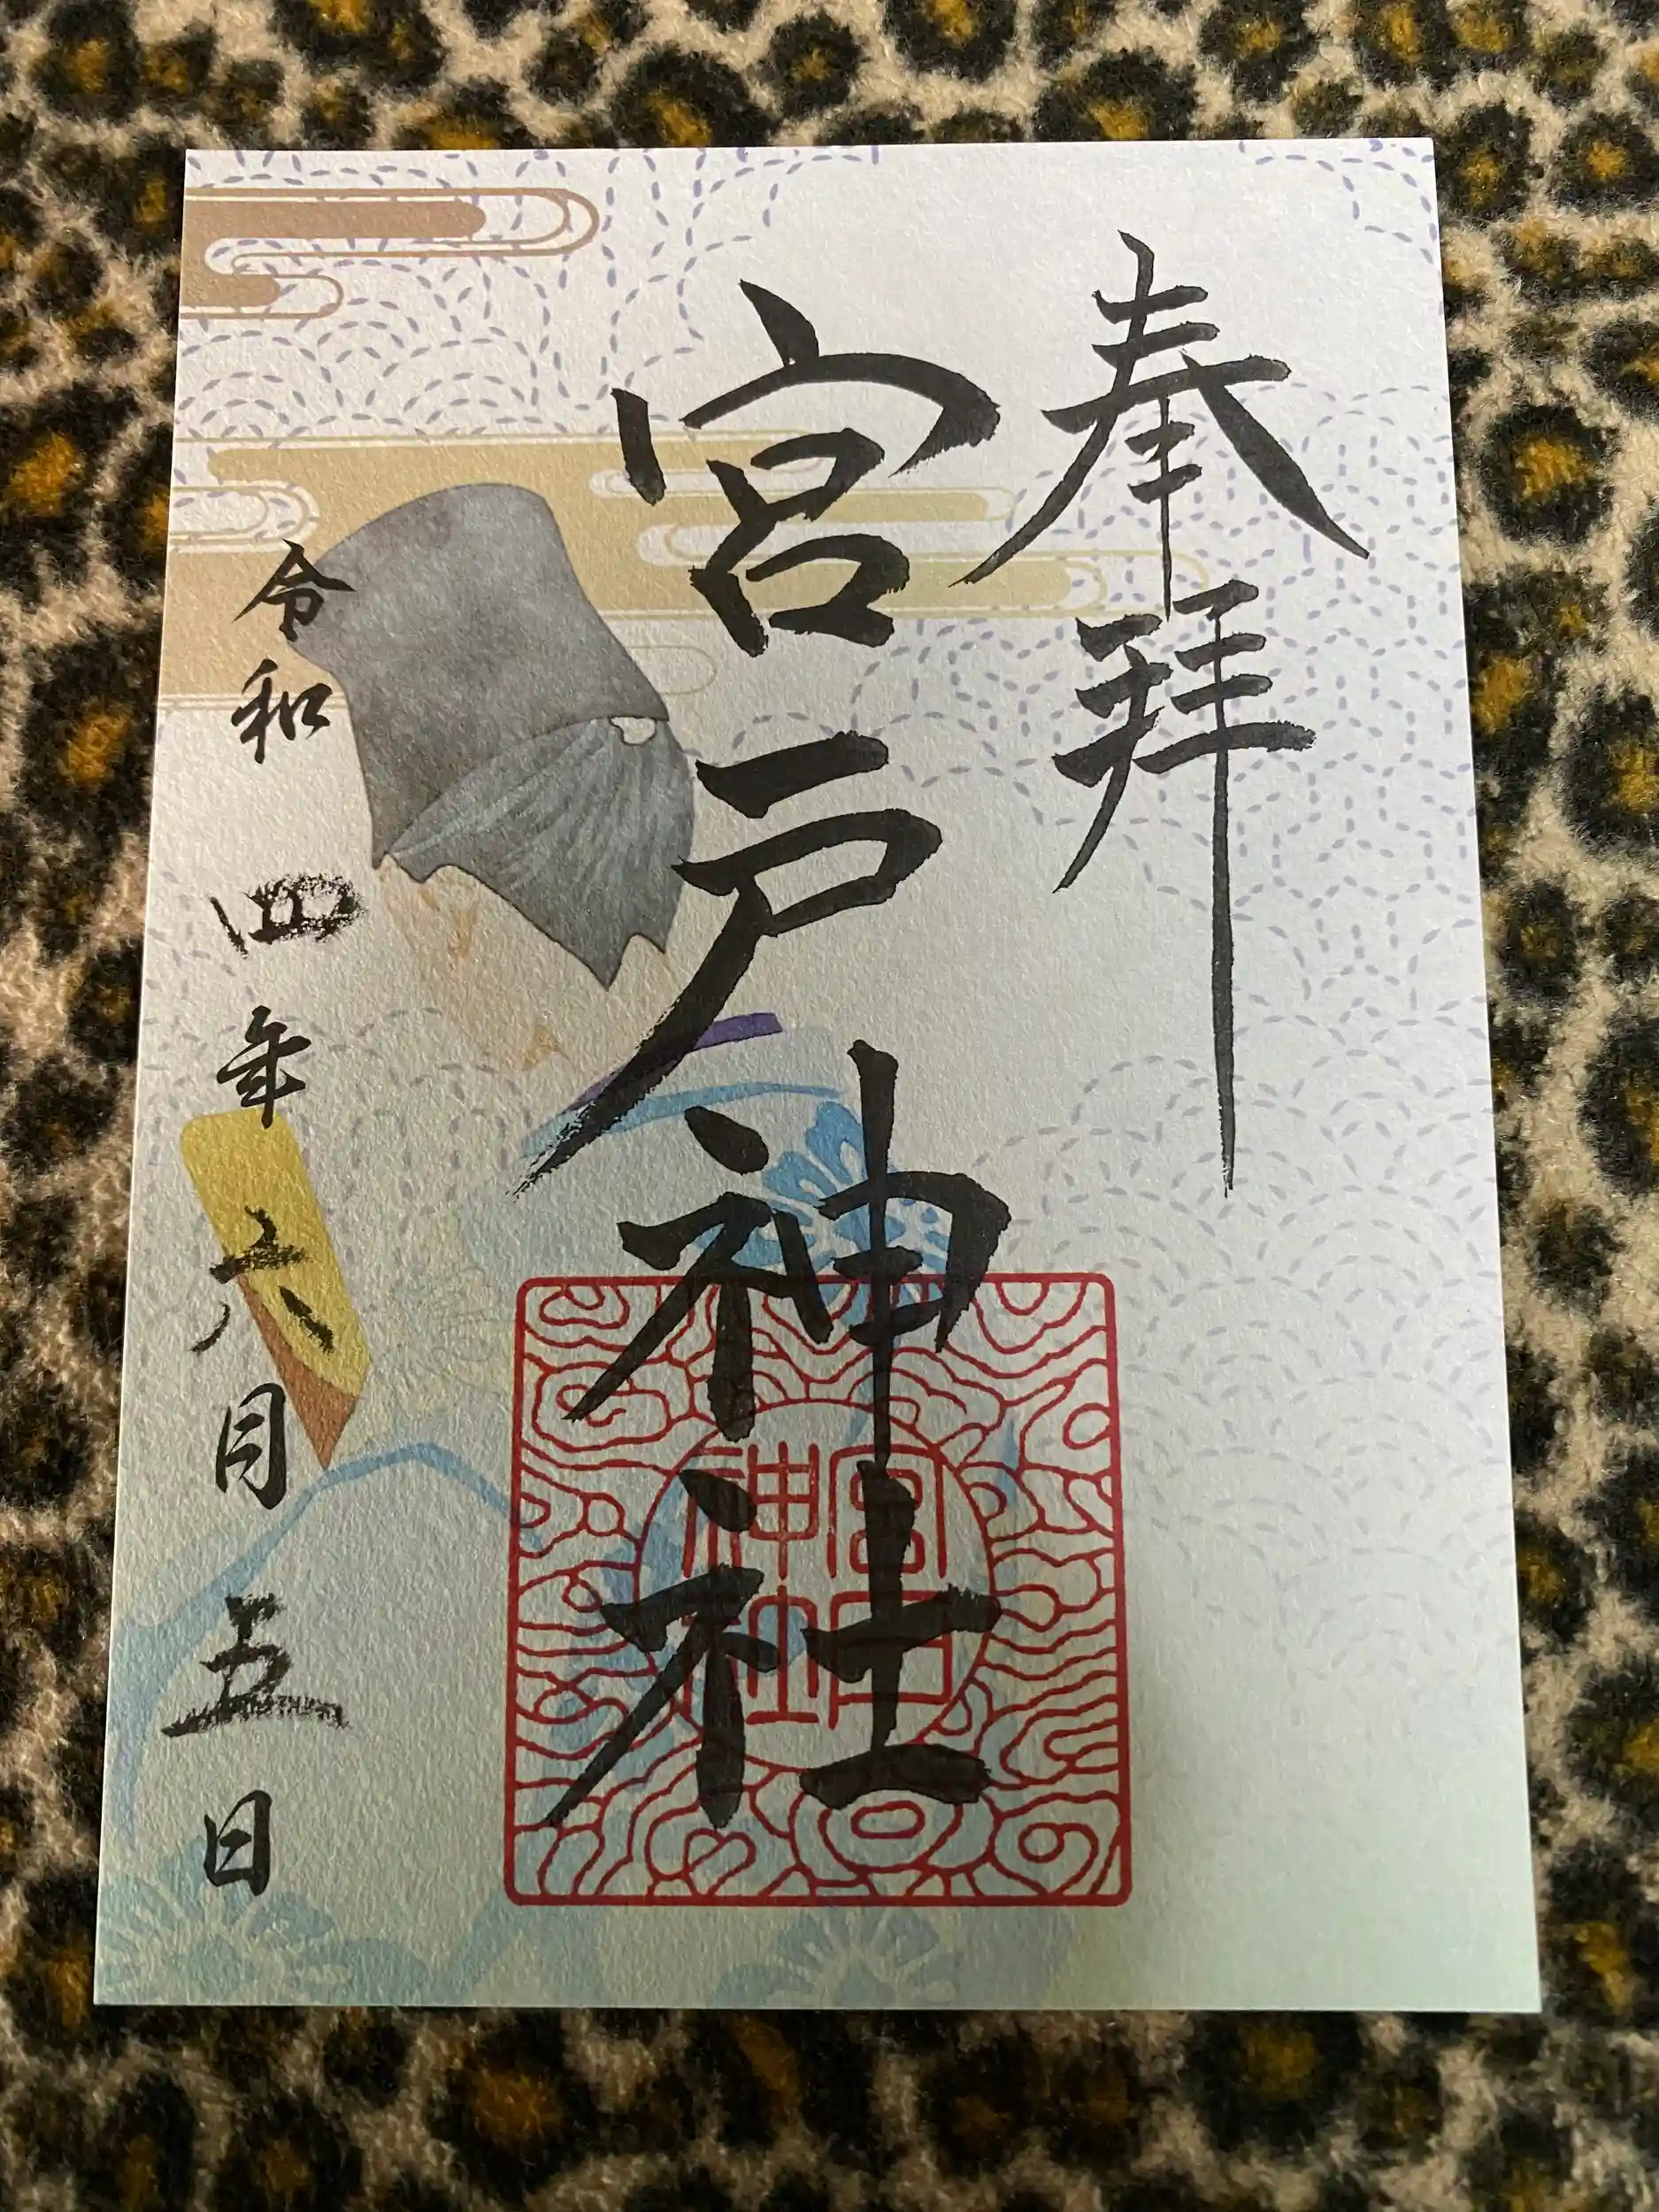 奉拝
宮戸神社
宮戸
神社
令和四年六月五日